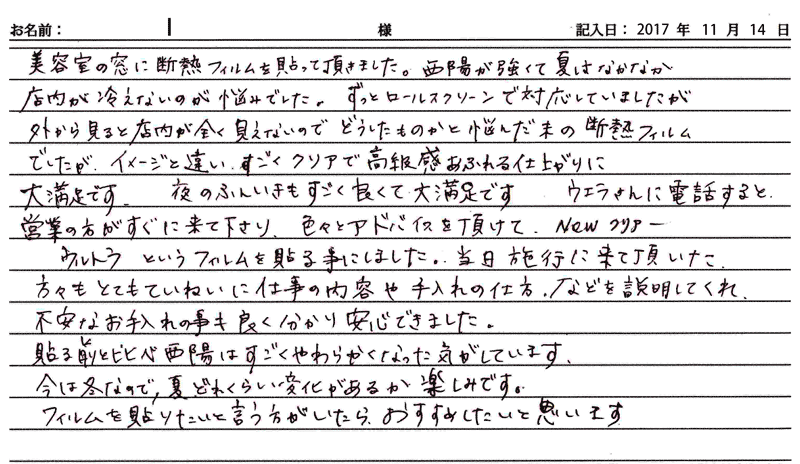 お名前： 様 記入日： 2017 年 11 月 14 日
美容室の窓に断熱フィルムを貼って頂きました。西陽が強くて夏はなかなか
店内が冷えないのが悩みでした。ずっとロールスクリーンで対応していましたが
外から見ると店内が全く見えないのでどうしたものかと悩んだ末の断熱フィルム
でしたが、イメージと違い、すごくクリアで高級感あふれる仕上がりに
大満足です。 夜のふんいきもすごく良くて大満足です ウエラさんに電話すると、
営業の方がすぐに来て下さり、色々とアドバイスを頂けて、Newクリアー
ウルトラ というフィルムを貼る事にしました。当日施行に来て頂いた
方々もとてもていねいに仕事の内容や手入れの仕方、などを説明してくれ、
不安なお手入れの事も良く分かり安心できました。
貼る前とくらべ西陽はすごくやわらかくなった気がしています。
今は冬なので、夏どれくらい変化があるか楽しみです。
フィルムを貼りたいと言う方がいたら、おすすめしたいと思います